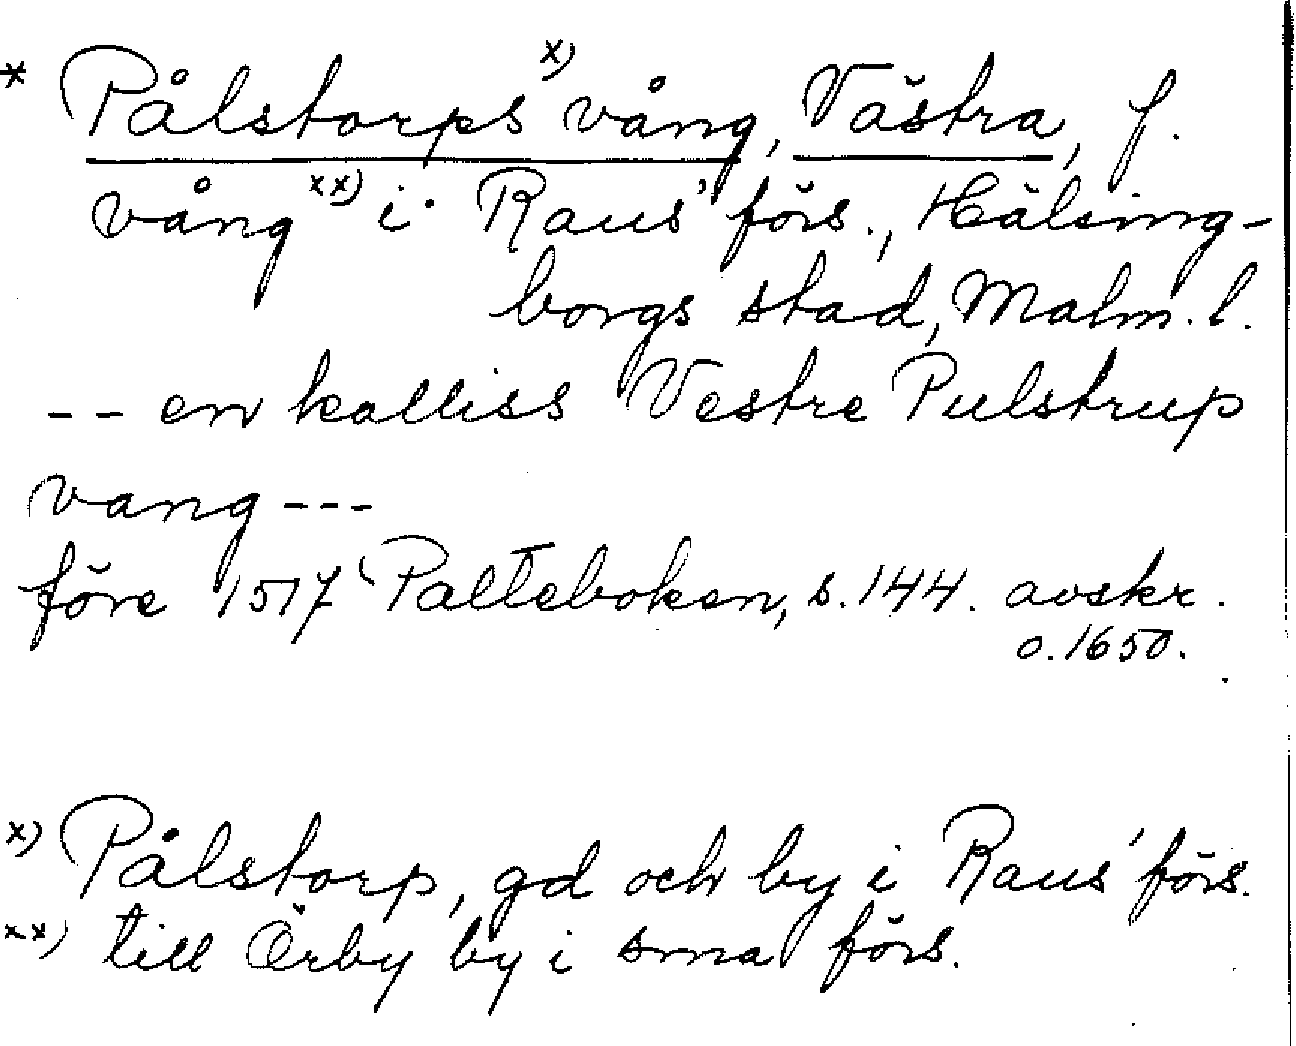 * Pålstorps x) vång, Västra, f.
vång xx) i Raus' förs., Hälsing-
borgs stad, Malm. l.
-- en kalliss Vestre Pulstrup
vang ---
före 1517 Palteboken, s. 144. avskr.
o. 1650.
x) Pålstorp, gd och by i Raus' förs.
xx) till Örby by i sma förs.